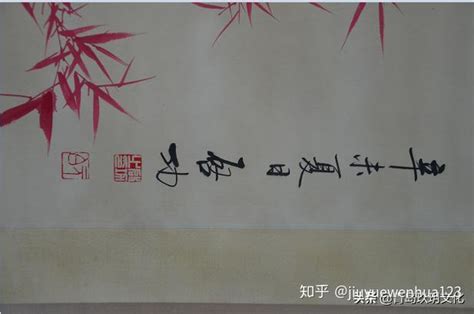 辛未夏日 启功
知乎 @jiuyuewenhua123
头条 @青岛玖玥文化